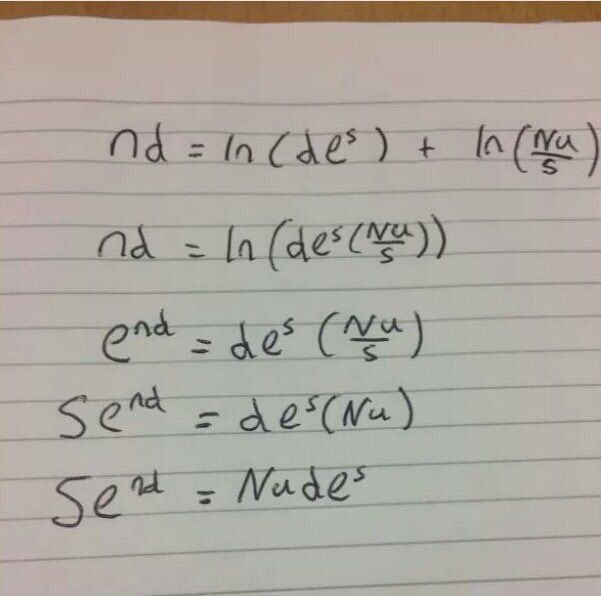 nd = ln(deˢ) + ln(Nu/s)
nd = ln(deˢ(Nu/s))
eⁿᵈ = deˢ (Nu/s)
Seⁿᵈ = deˢ(Nu)
Seⁿᵈ = Nudeˢ